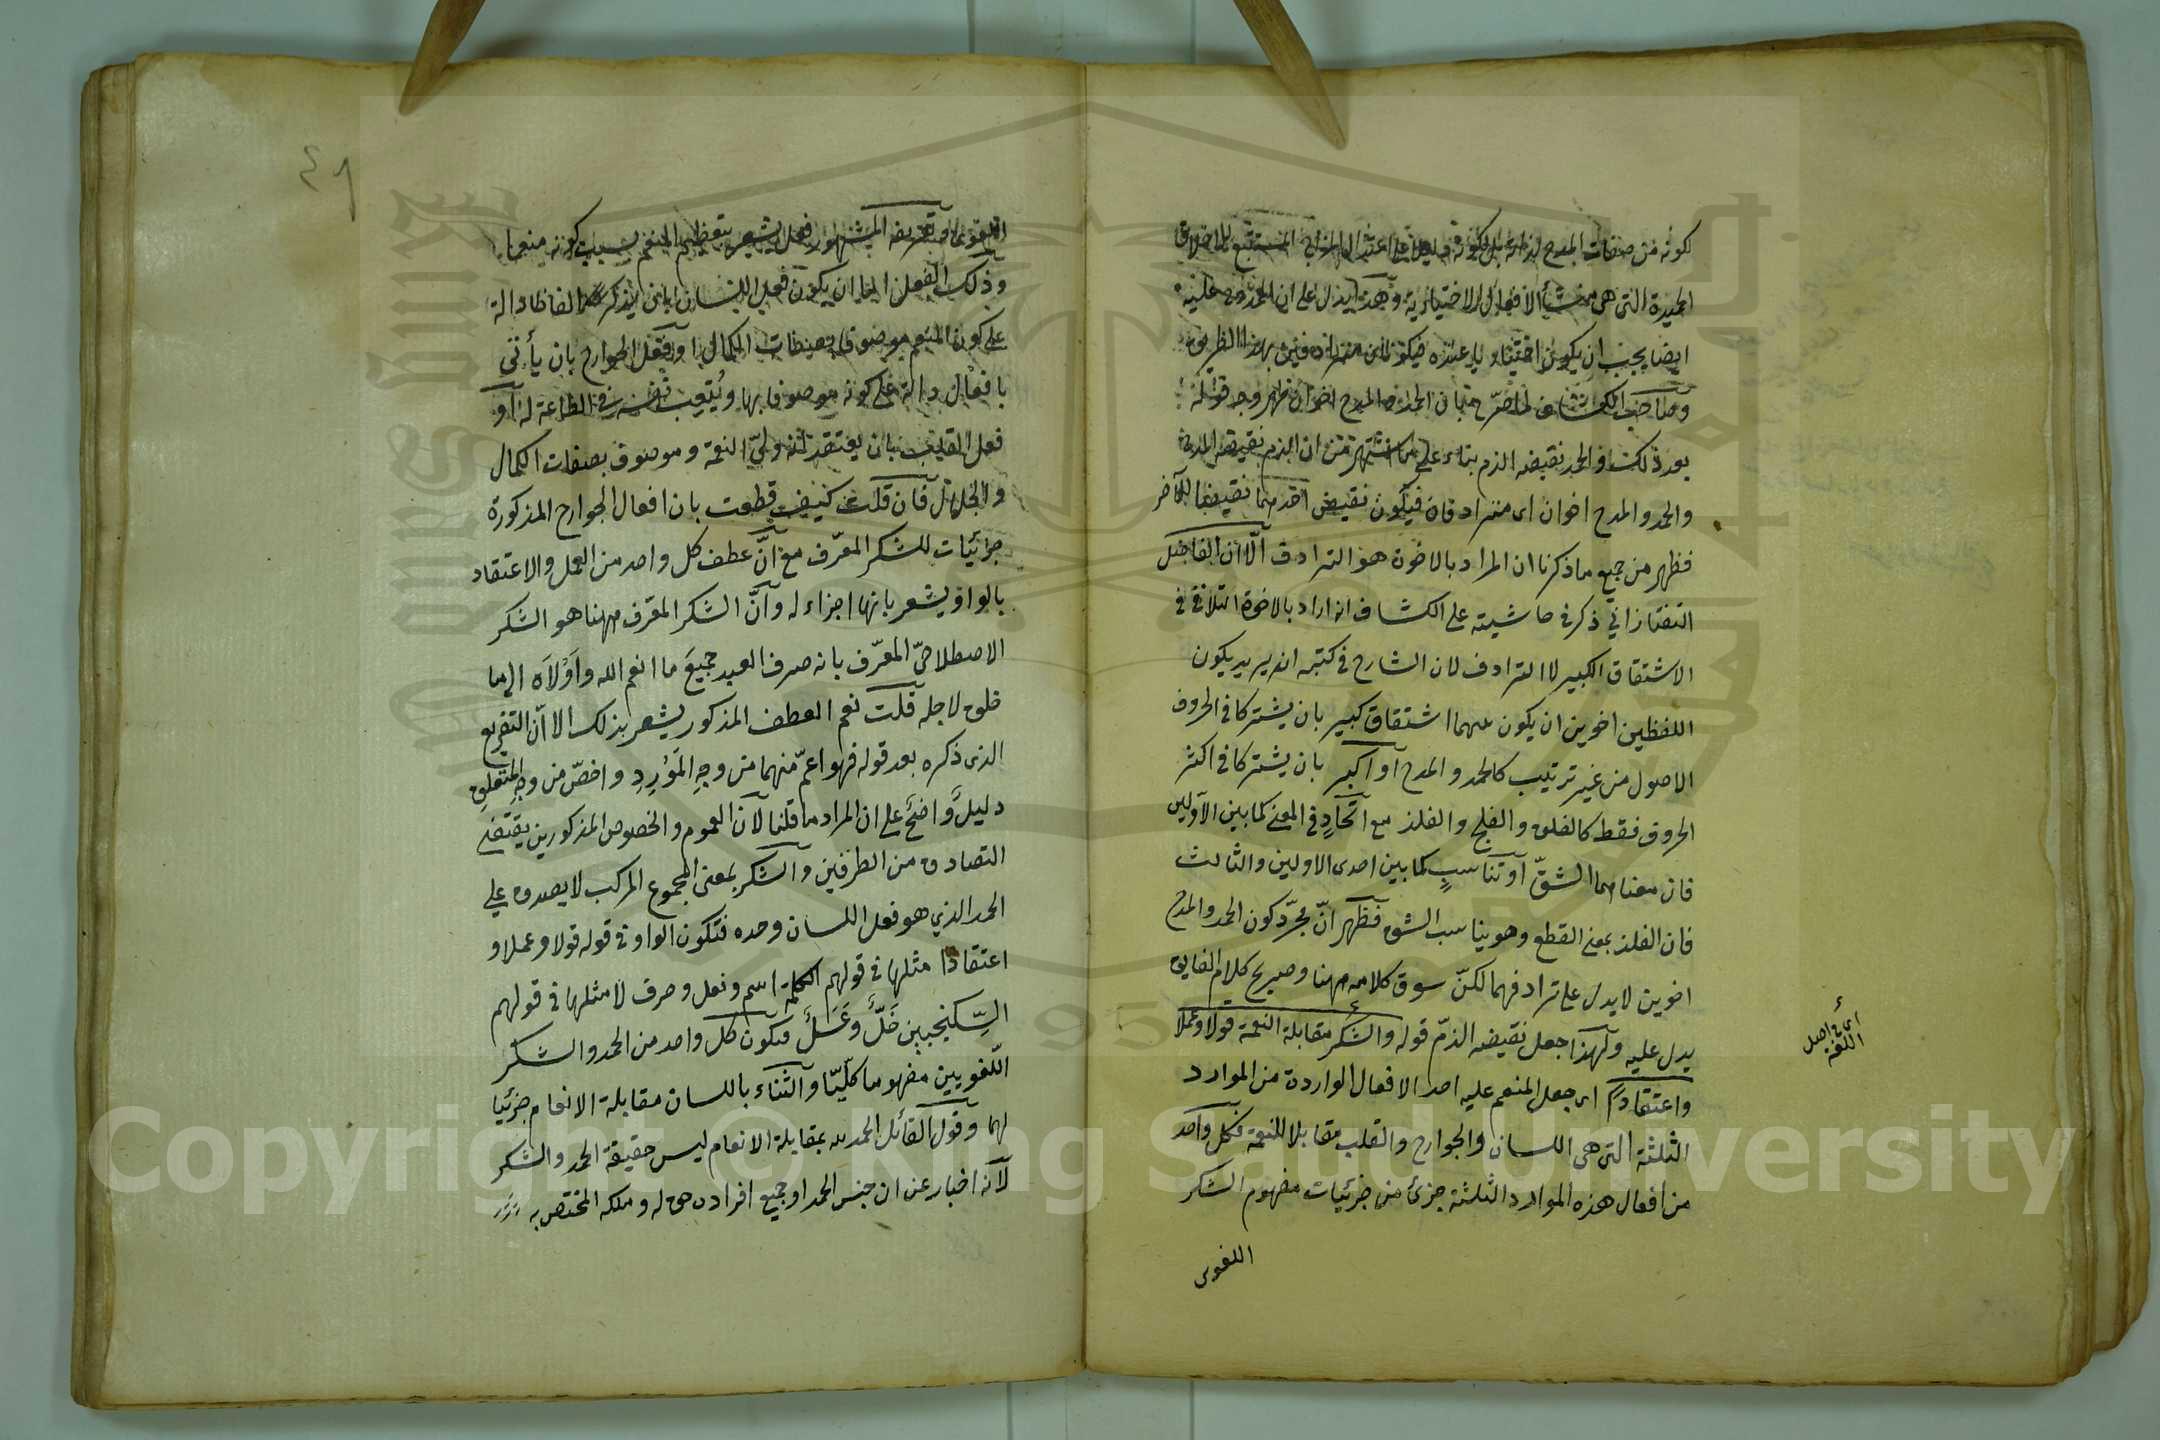 لكونه من صفات المدح لذاته بل لكونه دليلا على اعتدال المزاج المستتبع للاخلاق
الحميدة التى هى منشأ الافعال الاختيارية وهذا يدل على ان الممدوح عليه
ايضا يجب ان يكون اختياريا عنده فيكونان مترادفين بهذا الطريق
وصاحب الكشاف لما صرّح بان الحمد والمدح اخوان ظهر وجه قوله
بعد ذلك والحمد نقيضه الذم بناء على ما اشتهر من ان الذم نقيض المدح
والحمد والمدح اخوان اى مترادفان فيكون نقيض احدهما نقيضا للآخر
فظهر من جميع ما ذكرنا ان المراد بالاخوة هو الترادف الّا ان الفاضل
التفتازاني ذكر في حاشيته على الكشاف انه اراد بالاخوة التلاقي في
الاشتقاق الكبير لا الترادف لان الشارح في كتبه انه يريد بكون
اللفظين اخوين ان يكون بينهما اشتقاق كبير بان يشتركا في الحروف
الاصول من غير ترتيب كالحمد والمدح او اكبر بان يشتركا في اكثر
الحروف فقط كالفلق والفلج والفلذ مع اتّحادٍ في المعنى كما بين الاولين
فان معناهما الشقّ او تناسبٍ كما بين احدى الاولين والثالث
فان الفلذ بمعنى القطع وهو يناسب الشق فظهر انّ مجرّد كون الحمد والمدح
اخوين لا يدل على ترادفهما لكنّ سوق كلامه ههنا وصريح كلام الفايق
يدل عليه ولهذا جعل نقيضه الذمّ قوله والشكر مقابلة النعمة قولا وعملا
واعتقادًا اى جعل المنعم عليه احد الافعال الواردة من الموارد
الثلثة التى هى اللسان والجوارح والقلب مقابلا للنعمة فكل واحد
من افعال هذه الموارد الثلثة جزئ من جزئيات مفهوم الشكر
اللغوى
اى في اصل
اللغة
٤٩
اللغوى وتعريفه المشهور فعل يشعر بتعظيم المنعم بسبب كونه منعما
وذلك الفعل اما ان يكون فعل اللسان بان يذكر الفاظا دالة
على كون المنعم موصوفا بصفات الكمال او فعل الجوارح بان يأتى
بافعال دالة على كونه موصوفا بها ويُتعِب نفسه في الطاعة له او
فعل القلب بان يعتقد انه ولىّ النعمة وموصوف بصفات الكمال
والجلال فان قلت كيف قطعت بان افعال الجوارح المذكورة
جزئيات للشكر المعرّف مع انّ عطف كل واحد من العمل والاعتقاد
بالواو يشعر بانها اجزاء له وانّ الشكر المعرّف ههنا هو الشكر
الاصطلاحىّ المعرّف بانه صرف العبد جميعَ ما انعم الله واَوْلاَه الى ما
خلق لاجله قلت نعم العطف المذكور يشعر بذلك الا انّ التفريع
الذى ذكره بعد قوله فهو اعمّ منهما من وجهِ المَوْرِدِ واخصّ من وجهِ المتعلق
دليلٌ واضحٌ على ان المراد ما قلنا لانّ العموم والخصوص المذكورين يقتضى
التصادق من الطرفين والشكر بمعنى المجموع المركب لا يصدق على
الحمد الذي هو فعل اللسان وحده فتكون الواو في قوله قولا وعملا و
اعتقادًا مثلها في قولهم الكلمة اسم وفعل وحرف لا مثلها في قولهم
السِّكنجبين خَلٌّ وعَسَلٌ فيكون كل واحد من الحمد والشكر
اللّغويين مفهوما كلّيّا والثناء باللسان مقابلة الانعام جزئيا
لهما وقول القائل الحمد لله بمقابلة الانعام ليس حقيقة الحمد والشكر
لانه اخبار عن ان جنس الحمد او جميع افراده حق له وملكه المختص به
Copyright © King Saud University